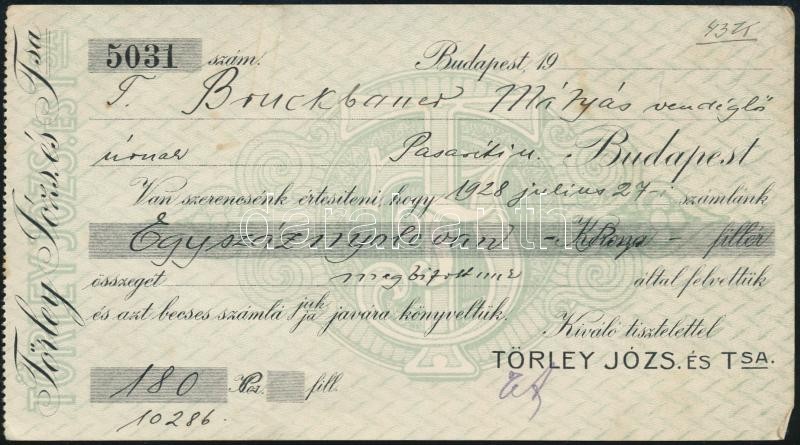 43 K
5031 szám. Budapest, 19
T. Bruckbauer Mátyás vendéglős
úrnak Pasaréti u. Budapest
Van szerencsénk értesíteni, hogy 1928 július 27-i számlánk
Egyszáznyolcvan - Korona - fillér
összegét megbízottunk által felvettük
és azt becses számlá juk/ja javára könyveltük.
Kiváló tisztelettel
TÖRLEY JÓZS. ÉS TSA.
180 Kor. fill.
10286.
Törley Józs. és Tsa
TÖRLEY JÓZS. ÉS TSA
darabanth